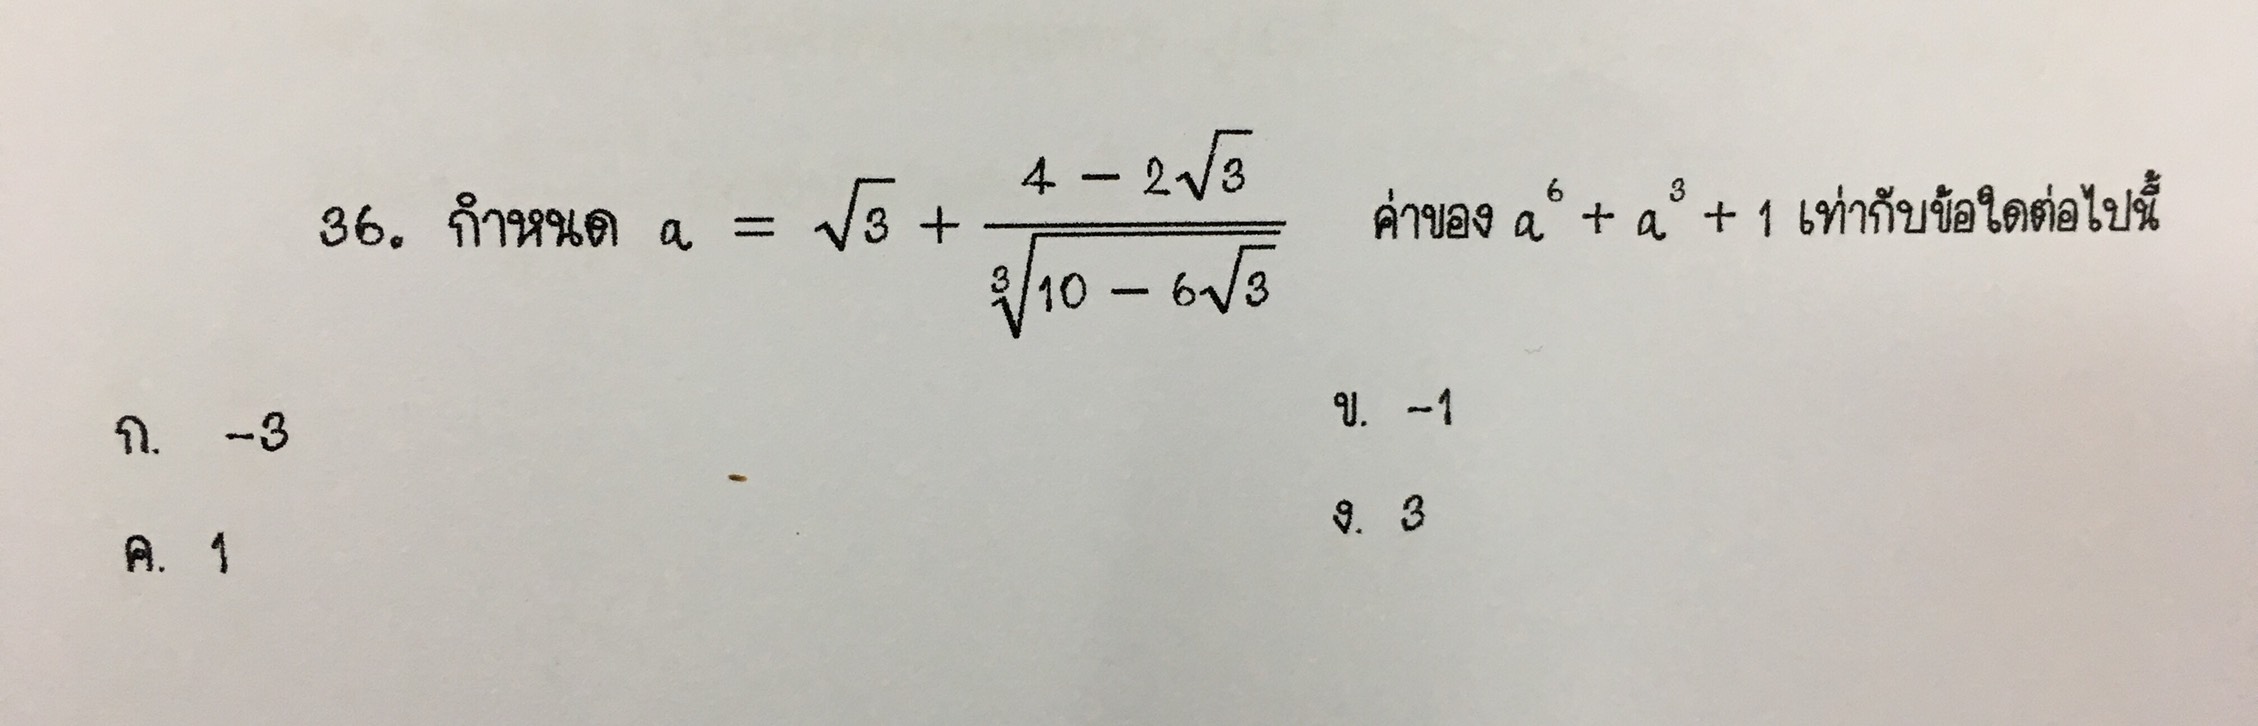 36. กำหนด a = √3 + (4 − 2√3)/(∛(10 − 6√3)) ค่าของ a⁶ + a³ + 1 เท่ากับข้อใดต่อไปนี้
ก. −3
ข. −1
ค. 1
ง. 3